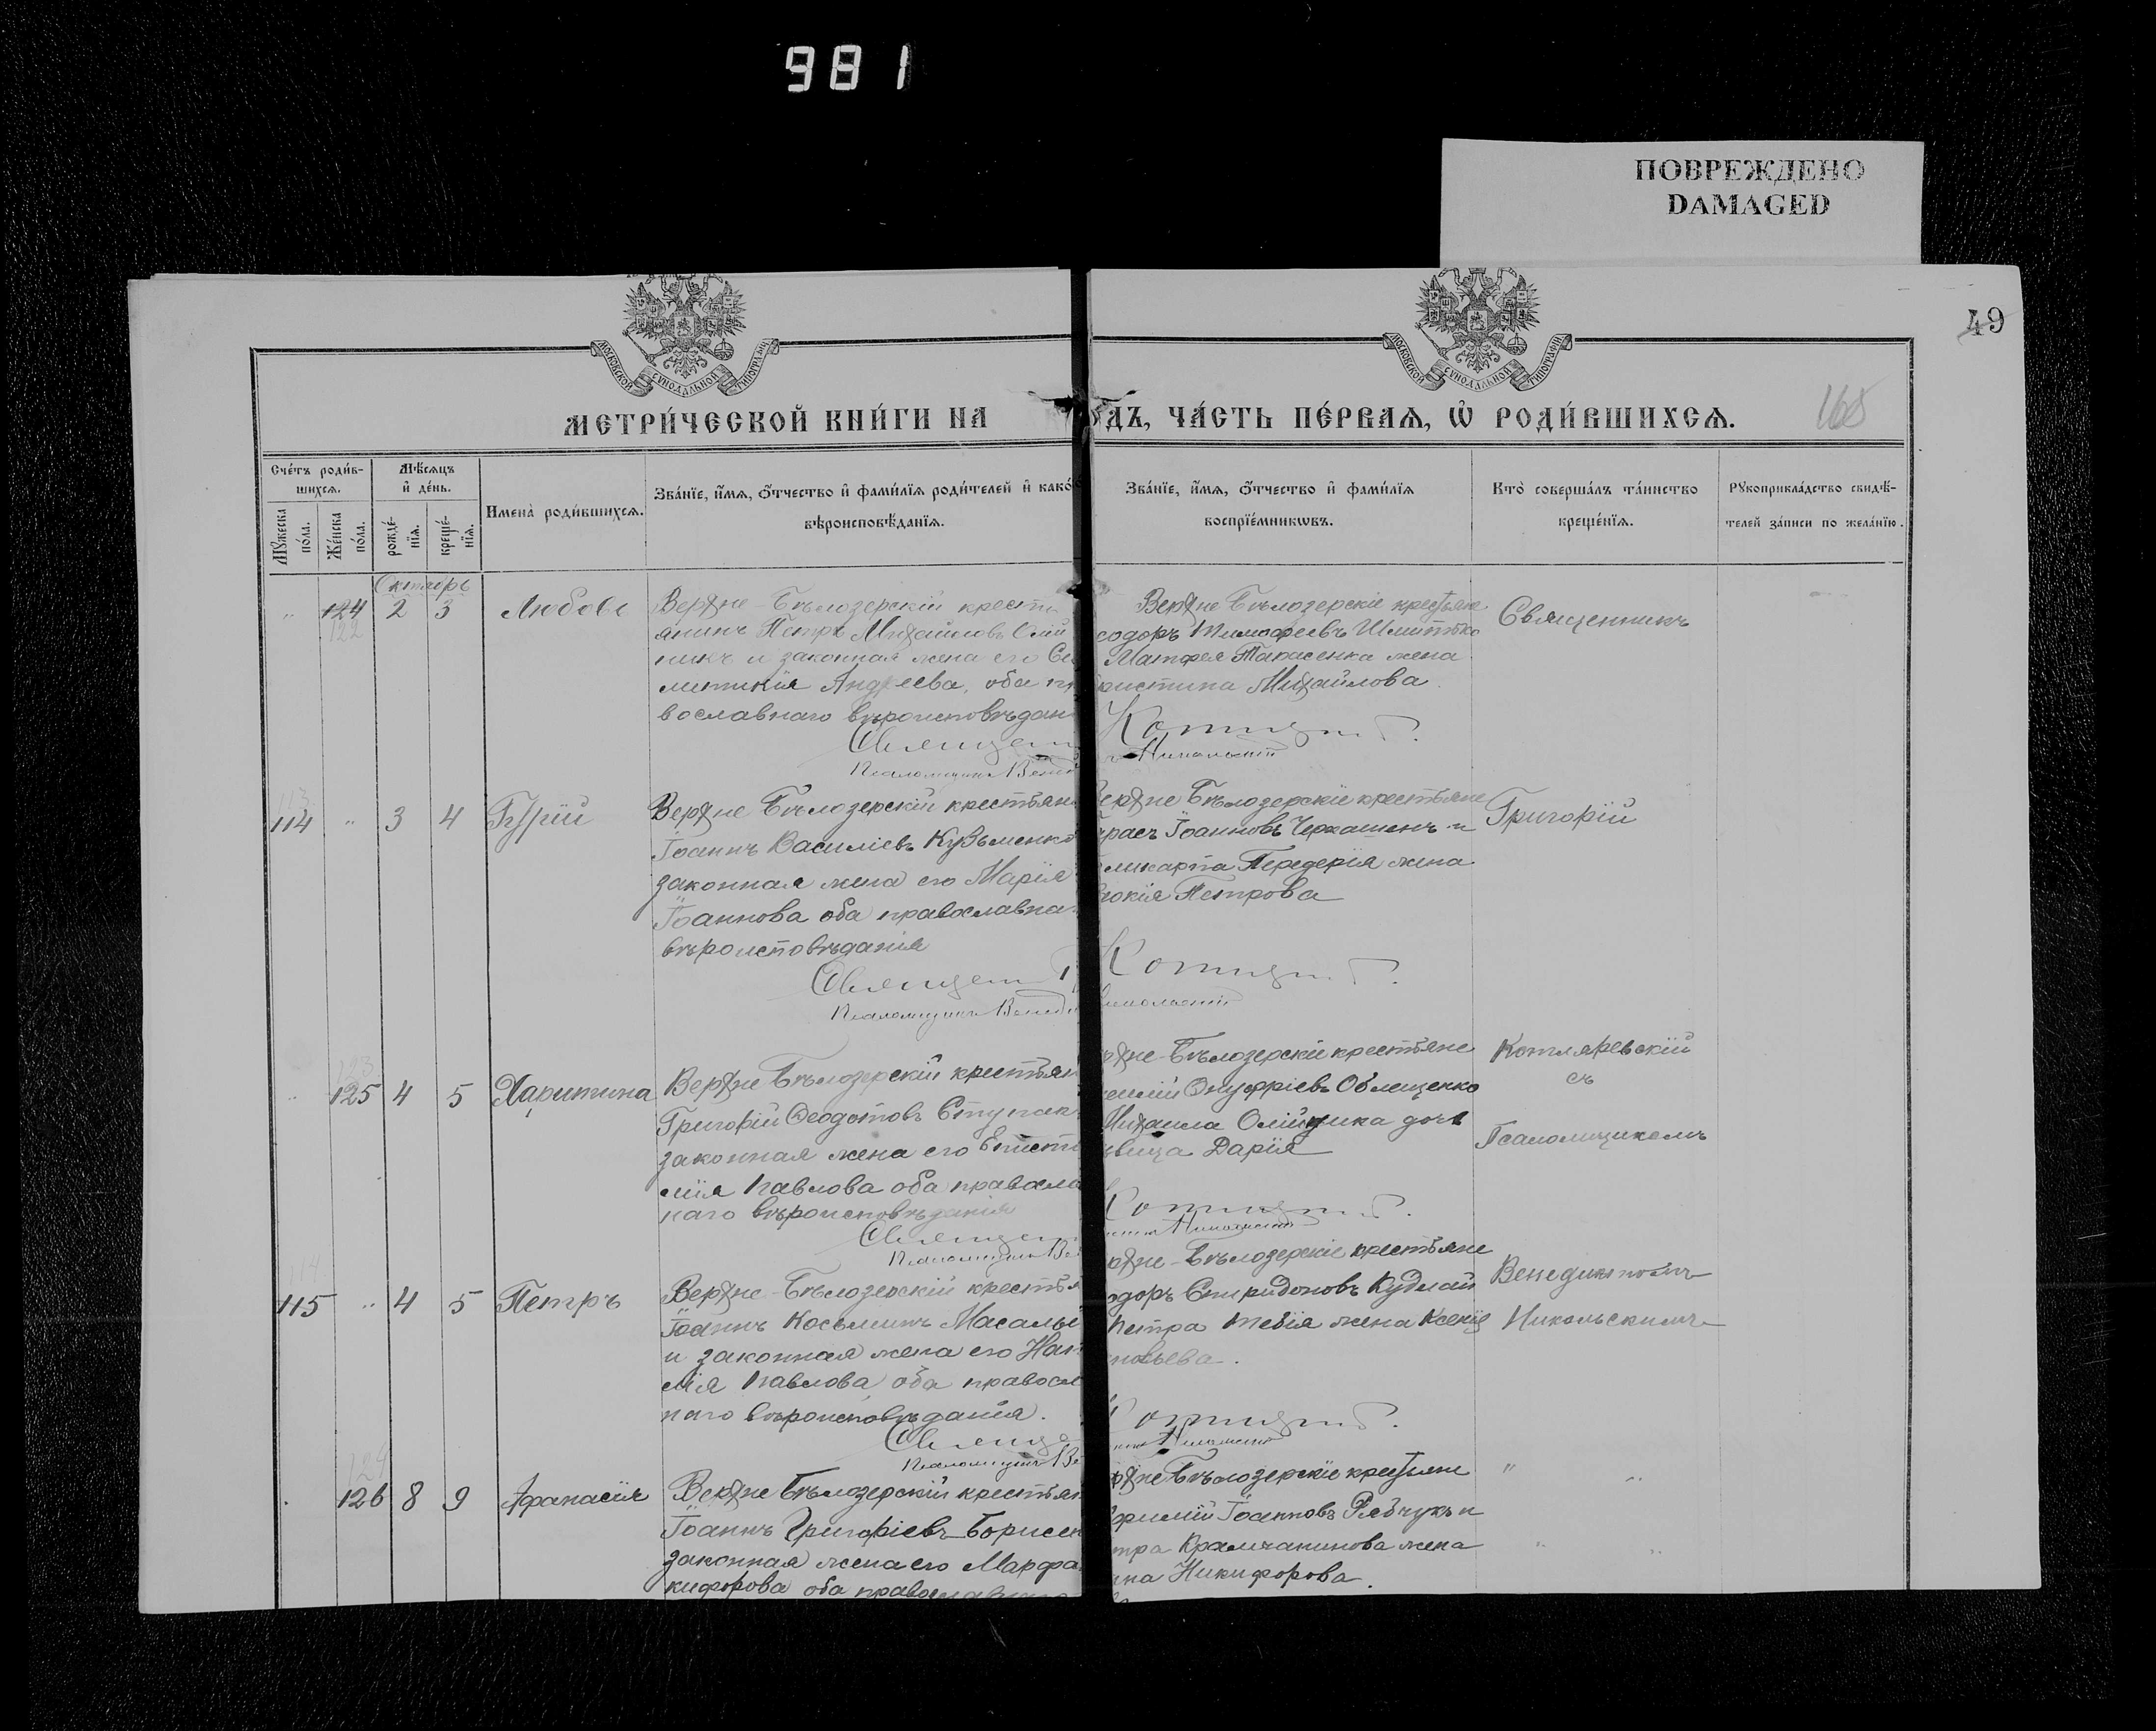 981
ПОВРЕЖДЕНО
DAMAGED
49
168
МОСКОВСКОЙ СѴНОДАЛЬНОЙ ТИПОГРАФІИ
МОСКОВСКОЙ СѴНОДАЛЬНОЙ ТИПОГРАФІИ
МЕТРИ́ЧЕСКОЙ КНИ́ГИ НА
ДЪ, ЧА́СТЬ ПЕ́РВАѦ, Ѡ҆ РОДИ́ВШИХСѦ.
Сче́тъ роди́в-
шихсѧ.
Мꙋ́жеска по́ла.
Же́нска по́ла.
Мѣ́сѧцъ
и҆ де́нь.
рожде́-нїѧ.
креще́-нїѧ.
Имена̀ роди́вшихсѧ.
Зва́нїе, и҆́мѧ, ѻ҆́тчество и҆ фами́лїѧ роди́телей и҆ како́
вѣроисповѣ́данїѧ.
Зва́нїе, и҆́мѧ, ѻ҆́тчество и҆ фами́лїѧ
воспрїе́мникѡвъ.
Кто̀ соверша́лъ та́инство
креще́нїѧ.
Рꙋкоприкла́дство свидѣ́-
телей за́писи по жела́нїю.
Октябрь
124 2 3 Любовь
122
Верхне-Бѣлозерскій крестья
янинъ Петръ Михайловъ Олій
никъ и законная жена его
Андреева, оба пр
вославнаго вѣроисповѣдан
Священ
Псаломщикъ Венед
Верхне Бѣлозерскіе крестьяне
еодоръ Тимофеевъ
Матфея Панасенка жена
ристина Михайлова
Священникъ
114 " 3 4 Гурій
Верхне Бѣлозерскій крестьян
Іоаннъ Василіевъ Кузьменко
законная жена его Марія
Іоаннова оба православна
вѣроисповѣданія
Священ
Псаломщикъ Венеди
ерхне Бѣлозерскіе крестьяне
расъ Іоанновъ Черкашенъ и
ликарпа Передерія жена
докія Петрова
Григорій
125 4 5 Харитина
Верхне Бѣлозерскій крестьян
Григорій Ѳеодотовъ Ступак
законная жена его Еписти
мія Павлова оба правосла
наго вѣроисповѣданія
Священ
Псаломщикъ Ве
рхне-Бѣлозерскіе крестьяне
Онуфріевъ Облещенко
Михаила Олійника дочь
вица Дарія
Котляревскій
съ
Псаломщикомъ
115 " 4 5 Петръ
Верхне-Бѣлозерскій крестья
Іоаннъ Косьминъ Масалы
и законная жена его Нат
лія Павлова, оба правосл
наго вѣроисповѣданія.
Священ
Псаломщикъ Ве
рхне-Бѣлозерскіе крестьяне
одоръ Спиридоновъ Кудлай
Петра жена Ксенія
новьева.
Венедиктомъ
Никольскимъ
126 8 9 Афанасія
Верхне Бѣлозерскій крестьян
Іоаннъ Григоріевъ Борисен
законная жена его Марфа
кифорова оба православнаго
рхне Бѣлозерскіе крестьяне
фимій Іоанновъ Рябчукъ и
тра Крамчанинова жена
нна Никифорова.